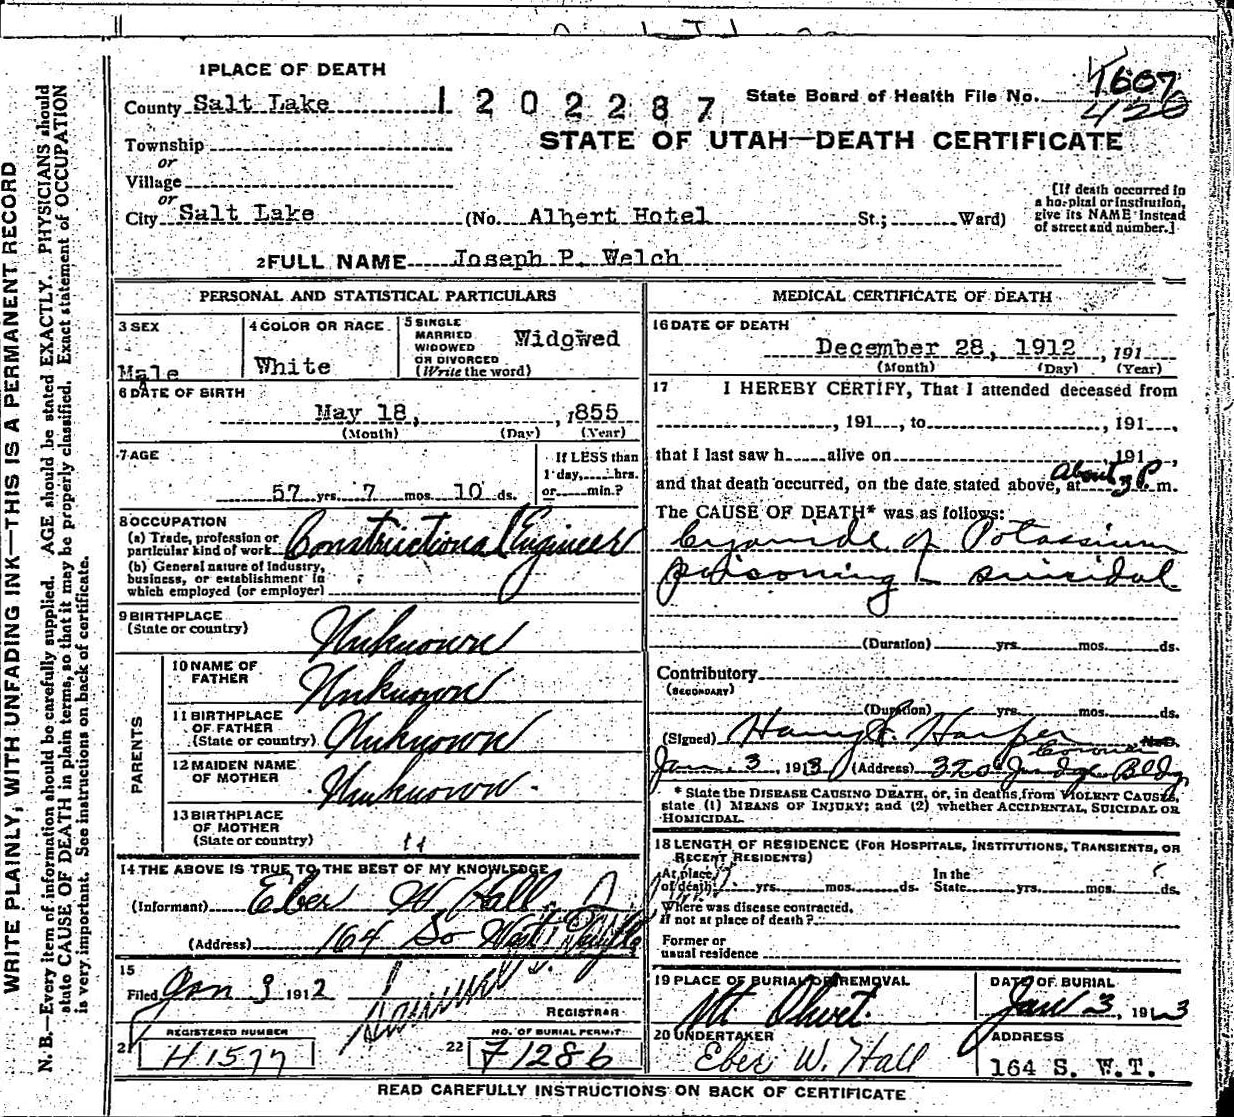 1 PLACE OF DEATH
County Salt Lake
1202287
State Board of Health File No. 1607
420
STATE OF UTAH—DEATH CERTIFICATE
Township
or
Village
or
City Salt Lake (No. Albert Hotel St.; Ward)
[If death occurred in
a hospital or institution,
give its NAME instead
of street and number.]
2 FULL NAME Joseph P. Welch
PERSONAL AND STATISTICAL PARTICULARS
3 SEX
Male
4 COLOR OR RACE
White
5 SINGLE
MARRIED
WIDOWED
OR DIVORCED
(Write the word)
Widowed
6 DATE OF BIRTH
May 18, , 1855
(Month) (Day) (Year)
7 AGE
57 yrs. 7 mos. 10 ds.
If LESS than
1 day, hrs.
or min.?
8 OCCUPATION
(a) Trade, profession or
particular kind of work Constructional Engineer
(b) General nature of industry,
business, or establishment in
which employed (or employer)
9 BIRTHPLACE
(State or country)
Unknown
PARENTS
10 NAME OF
FATHER
Unknown
11 BIRTHPLACE
OF FATHER
(State or country)
Unknown
12 MAIDEN NAME
OF MOTHER
Unknown.
13 BIRTHPLACE
OF MOTHER
(State or country)
"
14 THE ABOVE IS TRUE TO THE BEST OF MY KNOWLEDGE
(Informant) Eber W Hall
(Address) 164 So West Temple
15
Filed Jan 3 1912
REGISTRAR
REGISTERED NUMBER
21 H1577
NO. OF BURIAL PERMIT
22 F1286
MEDICAL CERTIFICATE OF DEATH
16 DATE OF DEATH
December 28, 1912 , 191
(Month) (Day) (Year)
17 I HEREBY CERTIFY, That I attended deceased from
, 191 , to , 191 ,
that I last saw h alive on , 191 ,
and that death occurred, on the date stated above, at About 3 P m.
The CAUSE OF DEATH* was as follows:
Cyanide of Potassium
poisoning - suicidal
(Duration) yrs. mos. ds.
Contributory
(SECONDARY)
(Duration) yrs. mos. ds.
(Signed) Harry F. Harper M.D.
Coroner
Jan. 3, 1913 (Address) 320 Judge Bldg.
* State the DISEASE CAUSING DEATH, or, in deaths from VIOLENT CAUSES,
state (1) MEANS OF INJURY; and (2) whether ACCIDENTAL, SUICIDAL OR
HOMICIDAL.
18 LENGTH OF RESIDENCE (FOR HOSPITALS, INSTITUTIONS, TRANSIENTS, OR
RECENT RESIDENTS)
At place
of death yrs. mos. ds.
In the
State yrs. mos. ds.
Where was disease contracted,
if not at place of death?
Former or
usual residence
19 PLACE OF BURIAL OR REMOVAL
Mt Olivet.
DATE OF BURIAL
Jan 3, 1913
20 UNDERTAKER
Eber W. Hall
ADDRESS
164 S. W.T.
READ CAREFULLY INSTRUCTIONS ON BACK OF CERTIFICATE
WRITE PLAINLY, WITH UNFADING INK—THIS IS A PERMANENT RECORD
N. B.—Every item of information should be carefully supplied. AGE should be stated EXACTLY. PHYSICIANS should
state CAUSE OF DEATH in plain terms, so that it may be properly classified. Exact statement of OCCUPATION
is very important. See instructions on back of certificate.